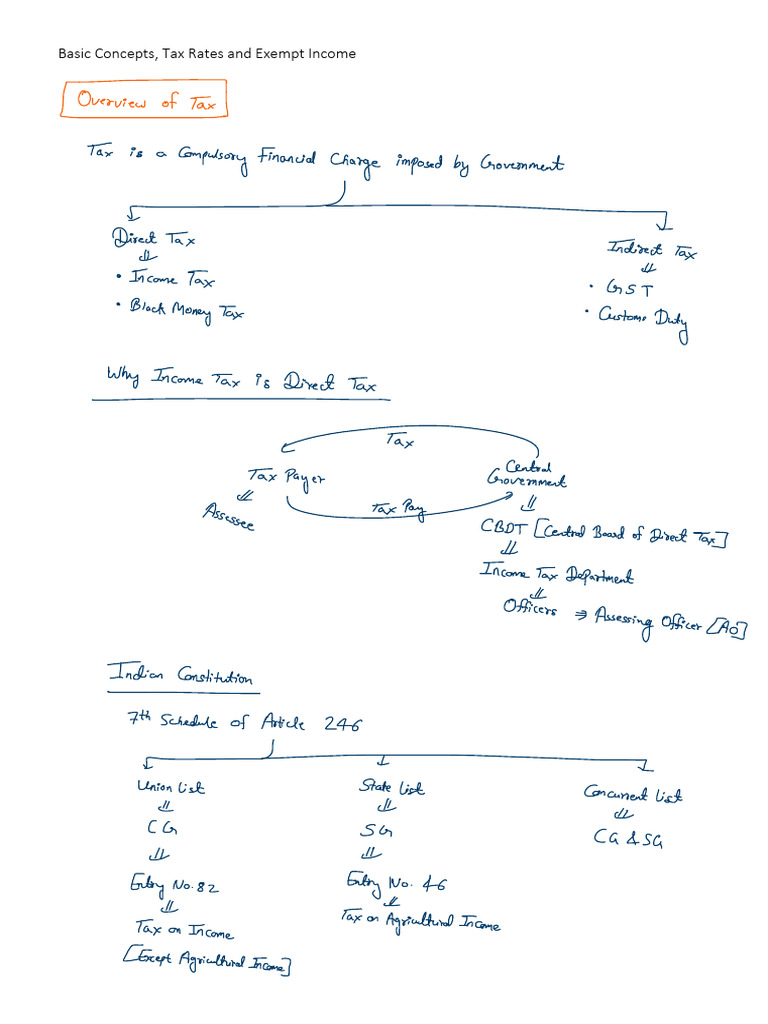 Basic Concepts, Tax Rates and Exempt Income
Overview of Tax
Tax is a Compulsory Financial Charge imposed by Government
Direct Tax
• Income Tax
• Black Money Tax
Indirect Tax
• GST
• Customs Duty
Why Income Tax is Direct Tax
Tax
Tax Payer
Assessee
Tax Pay
Central
Government
CBDT [Central Board of Direct Tax]
Income Tax Department
Officers ⇒ Assessing Officer [AO]
Indian Constitution
7th Schedule of Article 246
Union List
CG
Entry No. 82
Tax on Income
[Except Agricultural Income]
State List
SG
Entry No. 46
Tax on Agricultural Income
Concurrent List
CG & SG